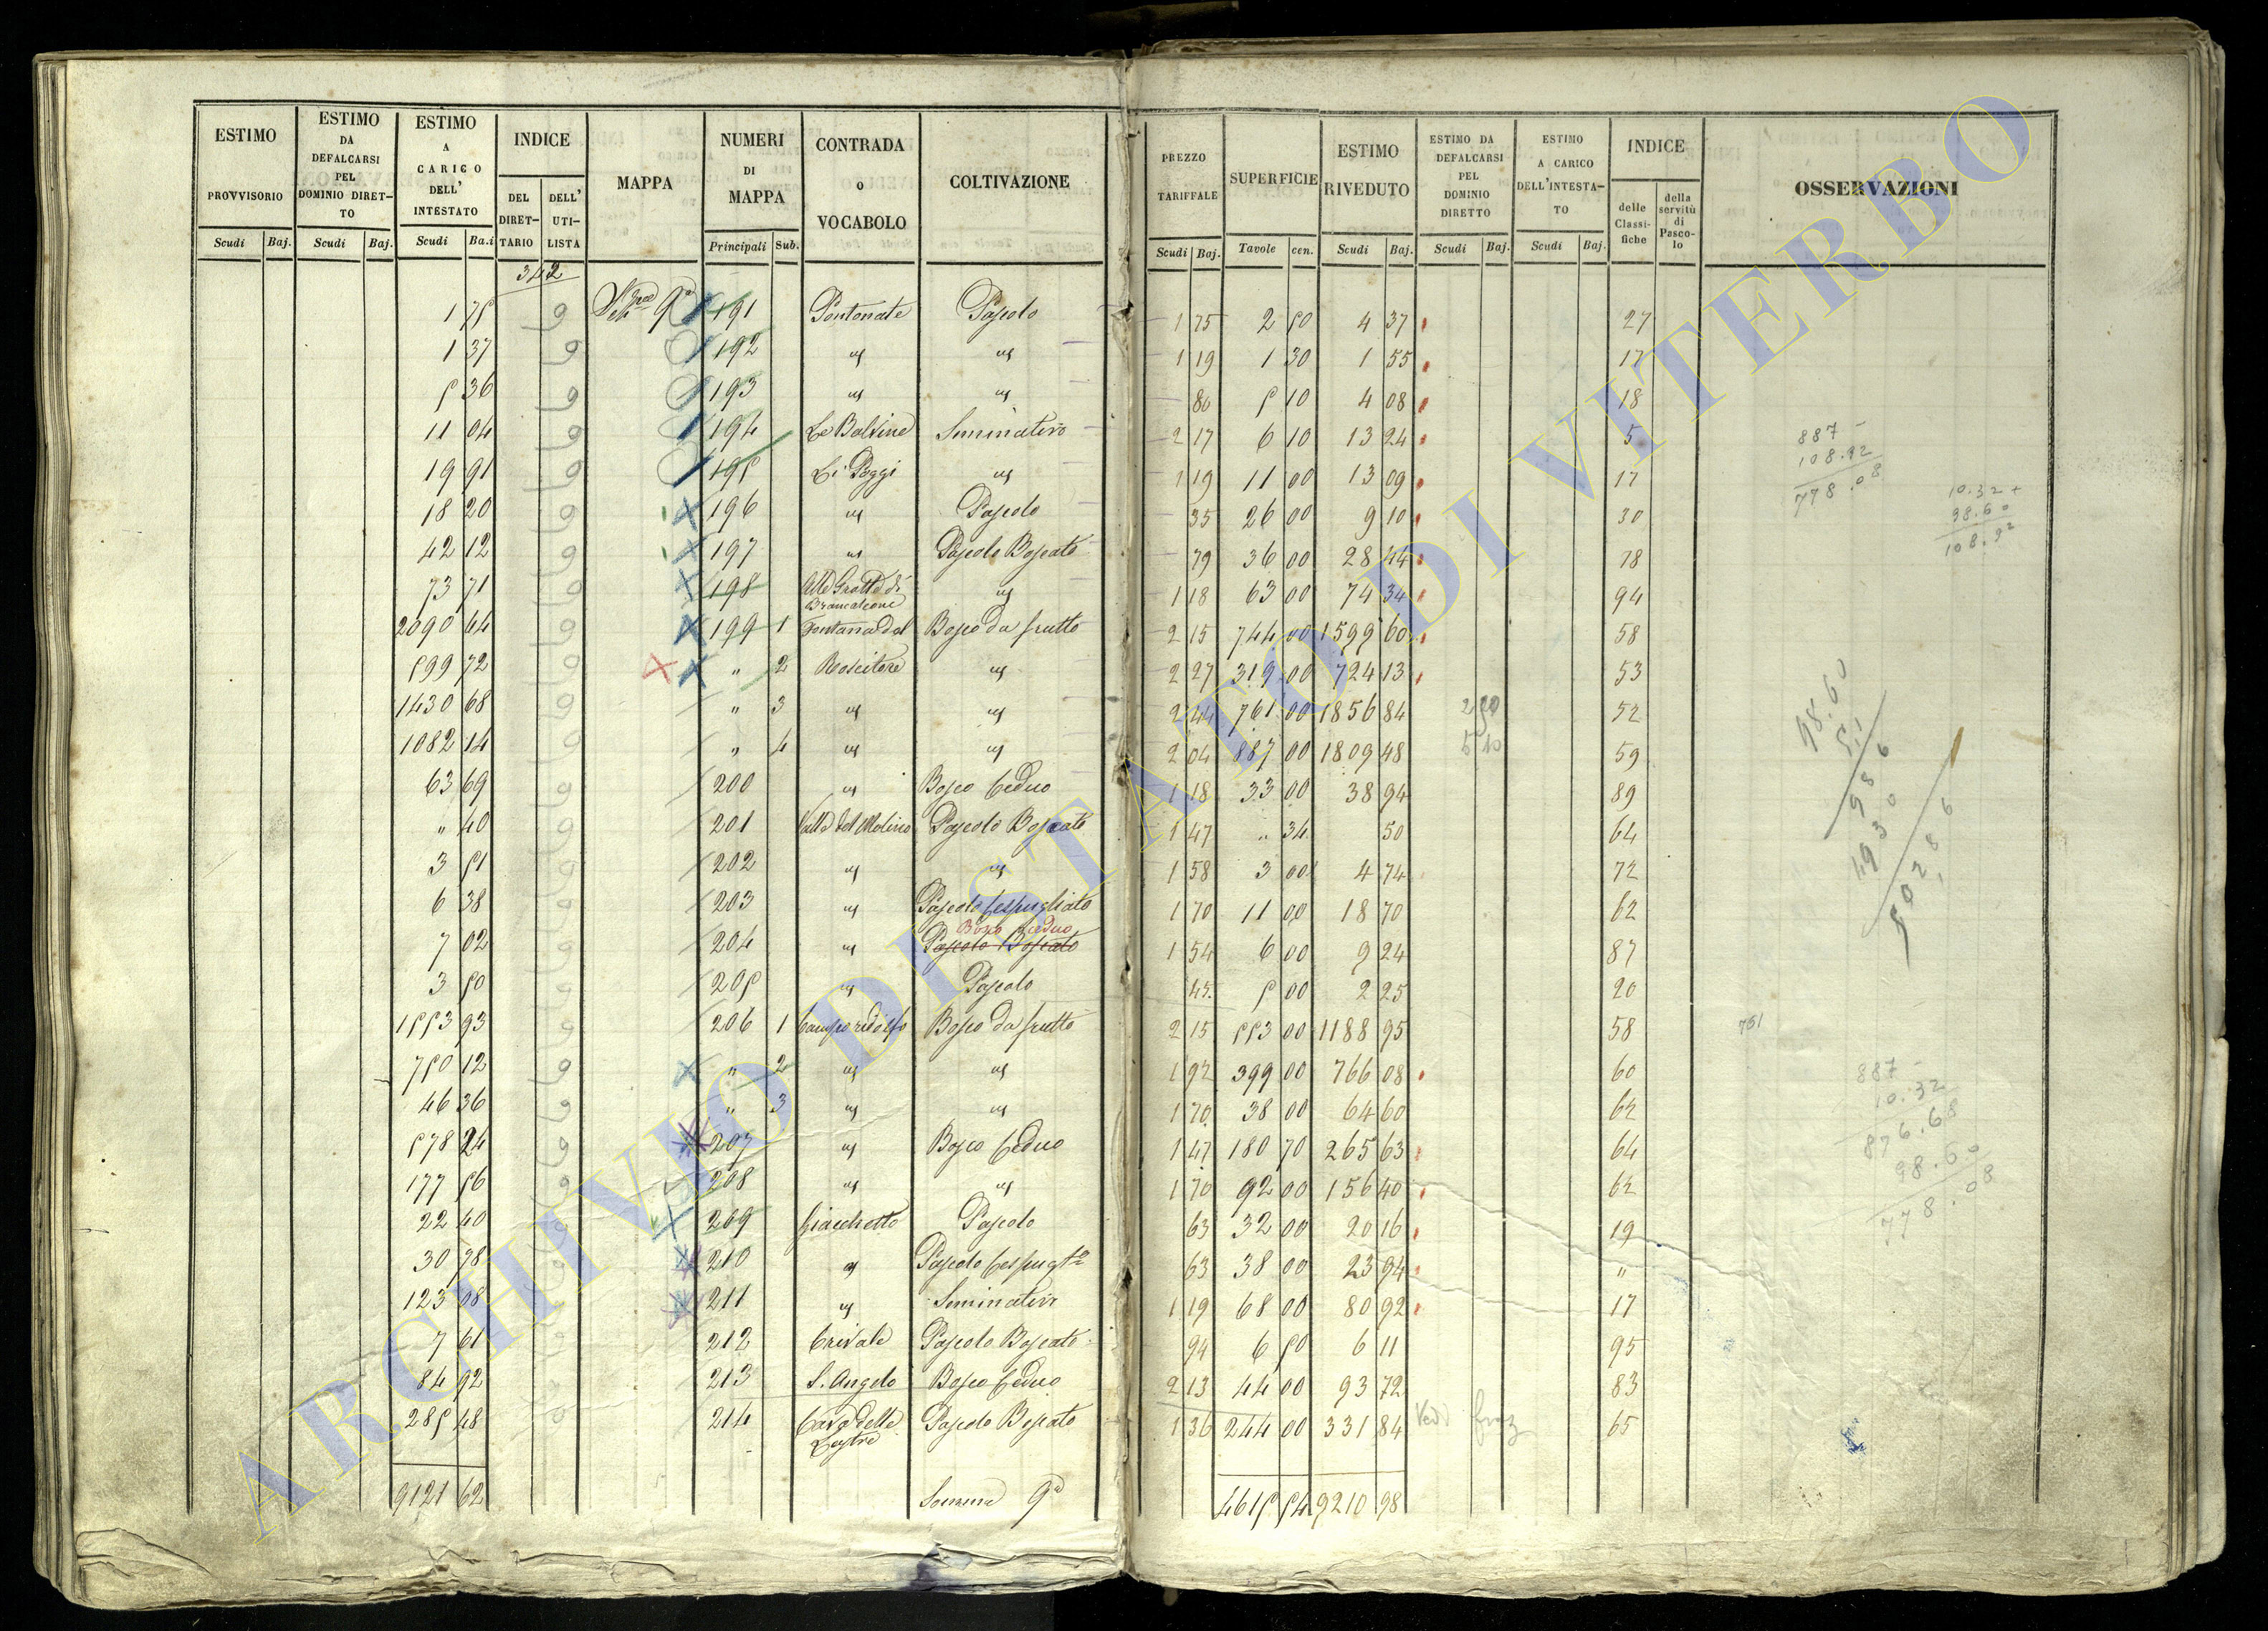 ESTIMO PROVVISORIO Scudi Baj.
ESTIMO DA DEFALCARSI PEL DOMINIO DIRET-TO Scudi Baj.
ESTIMO A CARICO DELL' INTESTATO Scudi Ba.i
INDICE DEL DIRET-TARIO DELL' UTI-LISTA
MAPPA
NUMERI DI MAPPA Principali Sub.
CONTRADA o VOCABOLO
COLTIVAZIONE
PREZZO TARIFFALE Scudi Baj.
SUPERFICIE Tavole cen.
ESTIMO RIVEDUTO Scudi Baj.
ESTIMO DA DEFALCARSI PEL DOMINIO DIRETTO Scudi Baj.
ESTIMO A CARICO DELL'INTESTA-TO Scudi Baj.
INDICE delle Classi-fiche della servitù di Pasco-lo
OSSERVAZIONI
342
1 75 9 9a 191 Pontonate Pascolo 1 75 2 50 4 37 27
1 37 9 192 " " 1 19 1 30 1 55 17
5 36 9 193 " " 80 5 10 4 08 18
11 04 9 194 Le Bolsine Seminativo 2 17 6 10 13 24 5
19 91 9 195 Li Poggi " 1 19 11 00 13 09 17
18 20 9 196 " Pascolo 35 26 00 9 10 30
42 12 9 197 " Pascolo Boscato 79 36 00 28 44 78
73 71 9 198 Alle Grotte di Brancaleone " 1 18 63 00 74 34 94
2090 64 9 199 1 Fontana del Bosco da frutto 2 15 744 00 1599 60 58
599 72 9 " 2 " 2 27 319 00 724 13 53
1430 68 9 " 3 " " 2 44 761 00 1856 84 2 20 52
1082 14 9 " 4 " " 2 04 887 00 1809 48 5 10 59
63 69 9 200 " Bosco Ceduo 1 18 33 00 38 94 89
" 40 9 201 Valle del Molino Pascolo Boscato 1 47 " 34 50 64
3 51 9 202 " " 1 58 3 00 4 74 72
6 38 9 203 " Pascolo Cespugliato 1 70 11 00 18 70 62
Bosco Ceduo
7 02 9 204 " Pascolo Boscato 1 54 6 00 9 24 87
3 50 9 205 " Pascolo 45 5 00 2 25 20
1553 93 9 206 1 Camporidolfo Bosco da frutto 2 15 553 00 1188 95 58 761
750 12 9 " 2 " " 1 92 399 00 766 08 60
46 36 9 " 3 " " 1 70 38 00 64 60 62
578 24 9 207 " Bosco Ceduo 1 47 180 70 265 63 64
177 56 9 208 " " 1 70 92 00 156 40 62
22 40 9 209 Giacchetto Pascolo 63 32 00 20 16 19
30 98 9 210 " Pascolo Cespugto 63 38 00 23 94 "
123 08 9 211 " Seminativo 1 19 68 00 80 92 17
7 61 9 212 Crivale Pascolo Boscato 94 6 50 6 11 95
84 92 9 213 S. Angelo Bosco Ceduo 2 13 44 00 93 72 83
285 48 9 214 Cava delle Lastre Pascolo Boscato 1 36 244 00 331 84 Vedi 65
9121 62 Somma 9a 4615 54 9210 98
887 -
108.92
778.08
10.32 +
98.60
108.92
98.60
51
986
4930
5028.6
887 -
10.32
876.68
98.60
778.08
ARCHIVIO DI STATO DI VITERBO